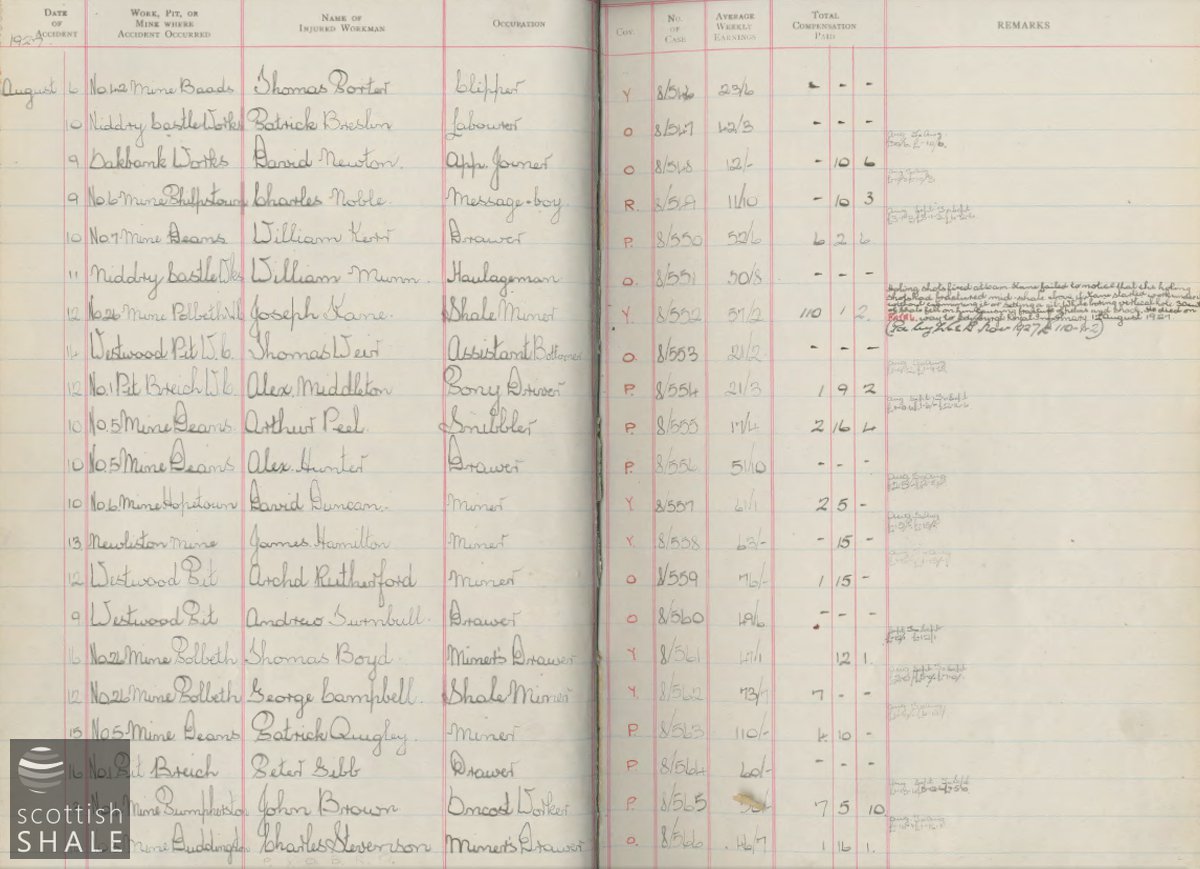 DATE OF ACCIDENT WORK, PIT, OR MINE WHERE ACCIDENT OCCURRED NAME OF INJURED WORKMAN OCCUPATION COY. NO. OF CASE AVERAGE WEEKLY EARNINGS TOTAL COMPENSATION PAID REMARKS
1927
August 6 No. 42 Mine Baads Thomas Porter Clipper Y 8/546 23/6 - - -
10 Niddry Castle Works Patrick Breslin Labourer O 8/547 42/3 - - -
9 Oakbank Works David Newton. App. Joiner O 8/548 12/- - 10 6
9 No. 6 Mine Philpstoun Charles Noble. Message-boy R. 8/549 11/10 - 10 3
10 No. 7 Mine Deans William Kerr Drawer P. 8/550 52/6 6 2 6
11 Niddry Castle Wks William Munn. Haulageman O. 8/551 50/8 - - -
12 No. 26 Mine Polbeth Joseph Kane. Shale Miner Y 8/552 57/2 110 1 2.
Holing shots fired at 10am Kane failed to notice that the holing
Royal Infirmary 12 August 1927
14 Westwood Pit W.C. Thomas Weir Assistant Bottomer O 8/553 21/2 - - -
12 No. 1 Pit Breich W.C. Alex. Middleton Pony Driver P. 8/554 21/3 1 9 2
10 No. 5 Mine Deans. Arthur Peel. Snibbler P. 8/555 17/4 2 16 4
10 No. 5 Mine Deans Alex. Hunter Drawer P. 8/556 51/10 - - -
10 No. 6 Mine Hopetown David Duncan. Miner Y 8/557 61/1 2 5 -
13 Newliston Mine James Hamilton Miner Y. 8/558 63/- - 15 -
12 Westwood Pit Archd Rutherford Miner O 8/559 76/- 1 15 -
9 Westwood Pit Andrew Turnbull. Drawer O 8/560 49/6 - - -
16 No. 26 Mine Polbeth Thomas Boyd. Miner's Drawer Y 8/561 47/1 12 1.
12 No. 26 Mine Polbeth George Campbell. Shale Miner Y. 8/562 73/7 7 - -
15 No. 5 Mine Deans Patrick Quigley. Miner P. 8/563 110/- 4 10 -
16 No. 1 Pit Breich Peter Gibb Drawer P. 8/564 60/- - - -
Mine Pumpherston John Brown Oncost Worker P. 8/565 7 5 10
Mine Duddingston Charles Stevenson Miner's Drawer O. 8/566 46/7 1 16 1.
scottish
SHALE